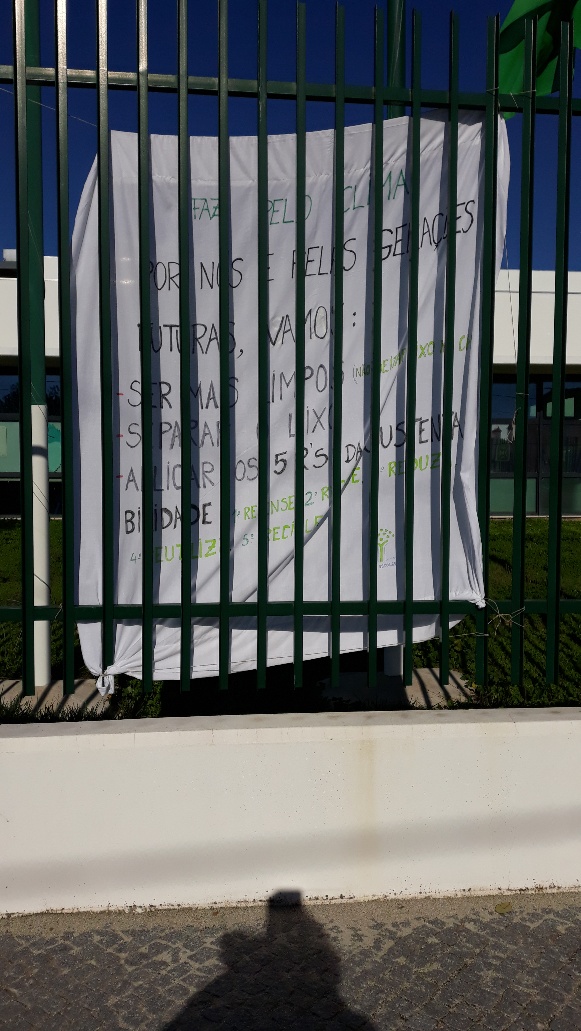 FAZ PELO CLIMA
POR NÓS E PELAS GERAÇÕES
FUTURAS, VAMOS:
- SER MAIS LIMPOS (NÃO DEIXAR LIXO NO
- SEPARAR O LIXO
- APLICAR OS 5 R'S DA SUSTENTA
BILIDADE 1º REPENSE 2º 3º REDUZ
4º REUTILIZ 5º RECICLE